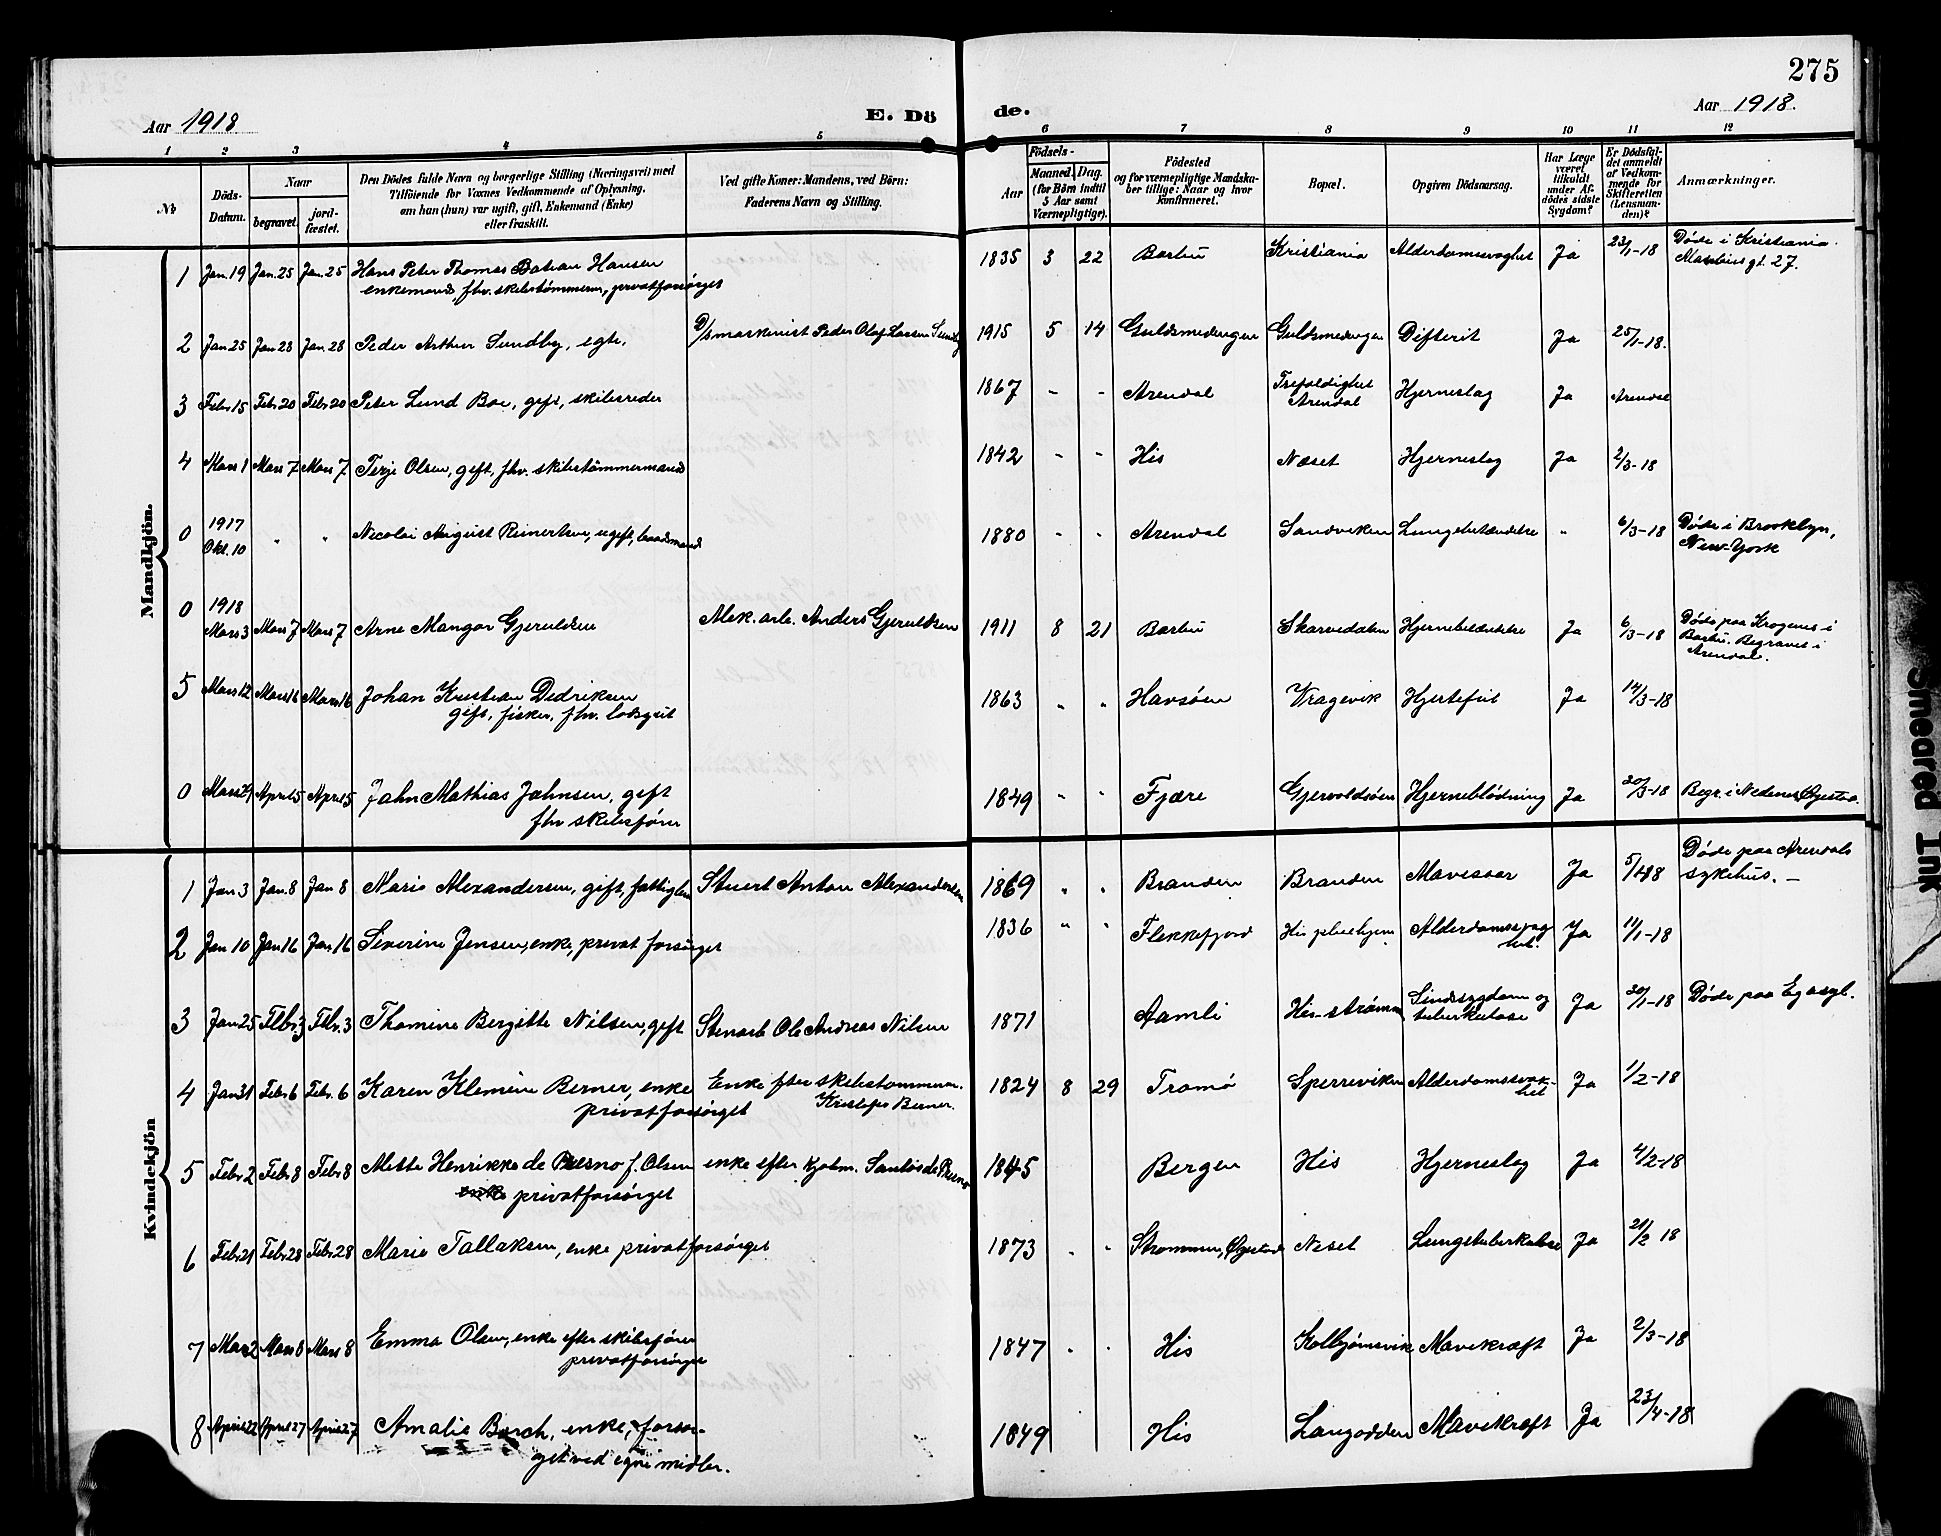 275
Aar 1918
E. Dö
de.
Aar 1918.
1 2 3 4 5 6 7 8 9 10 11 12
No
Döds-Datum.
Naar
begravet.
jord-fæstet.
Den Dödes fulde Navn og borgerlige Stilling (Næringsvei) med
Tilföiende for Voxnes Vedkommende af Oplysning,
om han (hun) var ugift, gift, Enkemand (Enke)
eller fraskilt.
Ved gifte Koner: Mandens, ved Börn:
Faderens Navn og Stilling.
Födsels-
Aar
Maaned. Dag.
(for Börn indtil
5 Aar samt
Værnepligtige).
Födested
og for værnepligtige Mandska-
ber tillige: Naar og hvor
konfirmeret.
Bopæl.
Opgiven Dödsaarsag.
Har Læge
været
tilkaldt
under Af-
dödes sidste
Sygdom?
Er Dödsfal-
det anmeldt
af Vedkom-
mende for
Skifteretten
(Lensman-
den)?
Anmærkninger.
Mandkjön.
1 Jan. 19 Jan. 25 Jan. 25 Hans Peter Thomas Hansen 1835 3 22 Barbu Kristiania Alderdomssvaghet Ja 23/1-18 Døde i Kristiania.
enkemand, fhv. skibstømmerm, privatforsørget gt. 27.
2 Jan 25 Jan 28 Jan. 28 Peder Arthur Sundby, egte. D/smaskinist Peder Olaf Larsen Sundby 1915 5 14 Guldsmedengen Guldsmedengen Difterit Ja 25/1-18.
3 Febr. 15 Febr 20 Febr 20 Peter Lund Boe, gift, skibsreder 1867 - - Arendal Trefoldighet Arendal Hjerneslag Ja Arendal
4 Mars 1 Mars 7 Mars 7. Terje Olsen, gift, fhv. skibstømmermand 1842 - - His Næset Hjerneslag Ja 2/3-18
0 1917 Okt. 10 " " Nicolai August Reinertsen, ugift, baadsmand 1880 - - Arendal Sandviken Lungebetændelse " 6/3-18 Døde i Brooklyn,
New-York
0 1918 Mars 3 Mars 7 Mars 7 Arne Mangor Gjeruldsen Mek. arb. Anders Gjeruldsen 1911 8 21 Barbu Skarvedalen Hjernebetændelse Ja 6/3-18 Døde paa Krogenes i
Barbu. Begraves i
Arendal.
5 Mars 12 Mars 16 Mars 16 Johan Kristian Dedriksen 1863 " " Havsøen Vragevik Hjertefeil Ja 14/3-18
gift, fisker, fhv. losgut
0 April 5 April 5 Jahn Mathias Jahnsen, gift 1849 " " Fjære Gjervoldsøen Hjerneblødning Ja 30/3-18 Begr. i Nedenes Øyestad.
fhv skibsfører
Kvindekjön
1 Jan. 3 Jan. 8 Jan 8 Maris Alexandersen, gift, fattiglem Stuert Anton Alexandersen 1869 " " Branden Branden Mavesaar Ja Døde paa Arendals
sykehus. -
2 Jan 10 Jan 16 Jan. 16 Severine Jensen, enke, privat forsørget 1836 " " Flekkefjord His pleiehjem Alderdomssvag
het. Ja 11/1-18
3 Jan. 25 Febr. 3 Febr. 3 Thomine Bergitte Nilsen, gift Stenarb Ole Andreas Nilsen 1871 Aamli His-strømm Sindssygdom og
tuberkulose Ja 30/1-18 Døde paa Eg asyl.
4 Jan 31 Febr. 6 Febr. 6 Karen Klemine Berner, enke Enke efter skibstømmerm. 1824 8 29 Tromø Sperreviken Alderdomssvak-
het Ja 1/2-18
privatforsørget Kristofer Berner.
5 Febr. 2 Febr 8 Febr 8 Mette Henrikke de Presno f. Olsen enke efter Santos de Presno 1845 Bergen His Hjerneslag Ja 4/2-18
enke privatforsørget
6 Febr. 21 Febr. 28 Febr. 28 Marie Tallaksen, enke privatforsørget 1873 " " Strømmen, Øyestad Neset Lungetuberkulose Ja 21/2 18
7 Mars 2 Mars 8 Mars 8 Emma Olsen, enke efter skibsfører 1847 " " His Kolbjørnsvik Mavekræft Ja 2/3-18
privatforsørget
8 April 22 April 27 April 27 Amalie Borch, enke, forsør- 1849 His Langodden Mavekræft Ja 23/4-18
get ved egne midler.
Smeared Ink